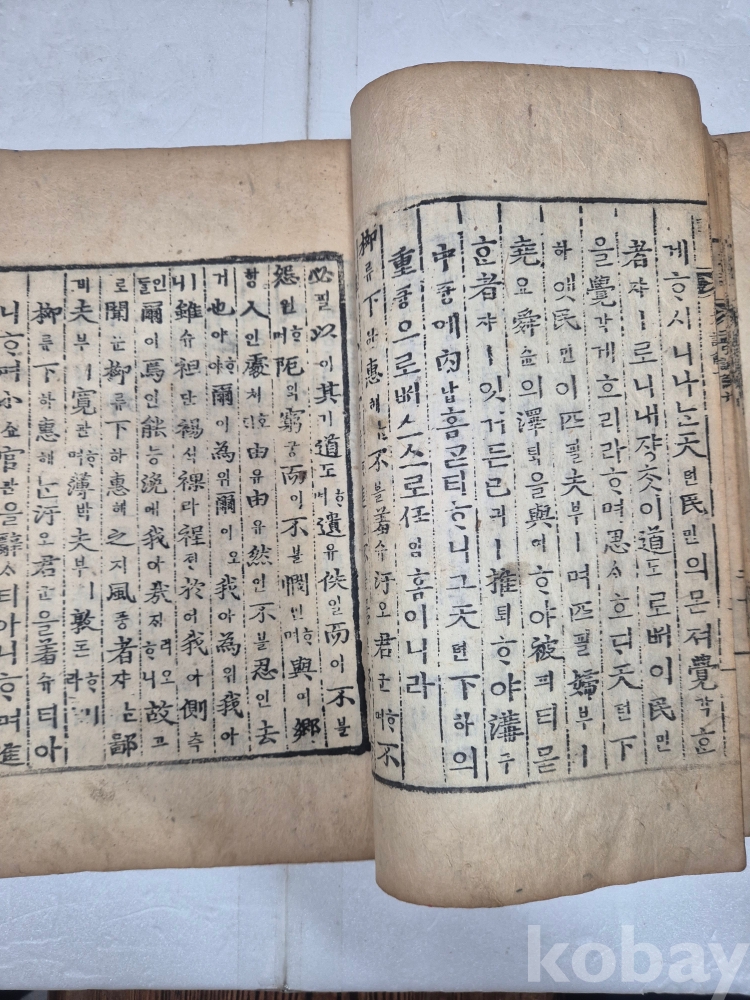 게ᄒᆞ시니나ᄂᆞᆫ天텬民민의몬져覺각ᄒᆞᆫ
者쟈ㅣ로니내쟝ᄎᆞᆺ이道도로ᄡᅥ이民민
을覺각게호리라ᄒᆞ며思ᄉᆞ호ᄃᆡ天텬下
하앳民민이匹필夫부ㅣ며匹필婦부ㅣ
堯요舜슌의澤ᄐᆡᆨ을與여ᄒᆞ야被피티몯
ᄒᆞᆫ者쟈ㅣ잇거든己긔ㅣ推퇴ᄒᆞ야溝구
中듕에內납홈ᄀᆞᆮ티ᄒᆞ니그天텬下하의
重듕으로ᄡᅥ스스로任임홈이니라
柳류下하惠혜ᄂᆞᆫ不블羞슈汙오君군ᄒᆞ며不
必필以이其기道도ᄒᆞ며遺유佚일而이不블
怨원ᄒᆞ며阨익窮궁而이不블憫민ᄒᆞ며與여鄕
향人인處쳐호ᄃᆡ由유由유然연不블忍인去
거也야ᄒᆞ야爾이爲위爾이오我아爲위我아
ㅣ니雖슈袒단裼셕裸라裎뎡於어我아側측
인ᄃᆞᆯ爾이焉언能능浼ᄆᆡ我아哉ᄌᆡ리오ᄒᆞ니故고
로聞문柳류下하惠혜之지風풍者쟈ᄂᆞᆫ鄙
비夫부ㅣ寬관ᄒᆞ며薄박夫부ㅣ敦돈ᄒᆞ니라
柳류下하惠혜ᄂᆞᆫ汙오君군을羞슈티아
니ᄒᆞ며小쇼官관을辭ᄉᆞ티아니ᄒᆞ며進
kobay